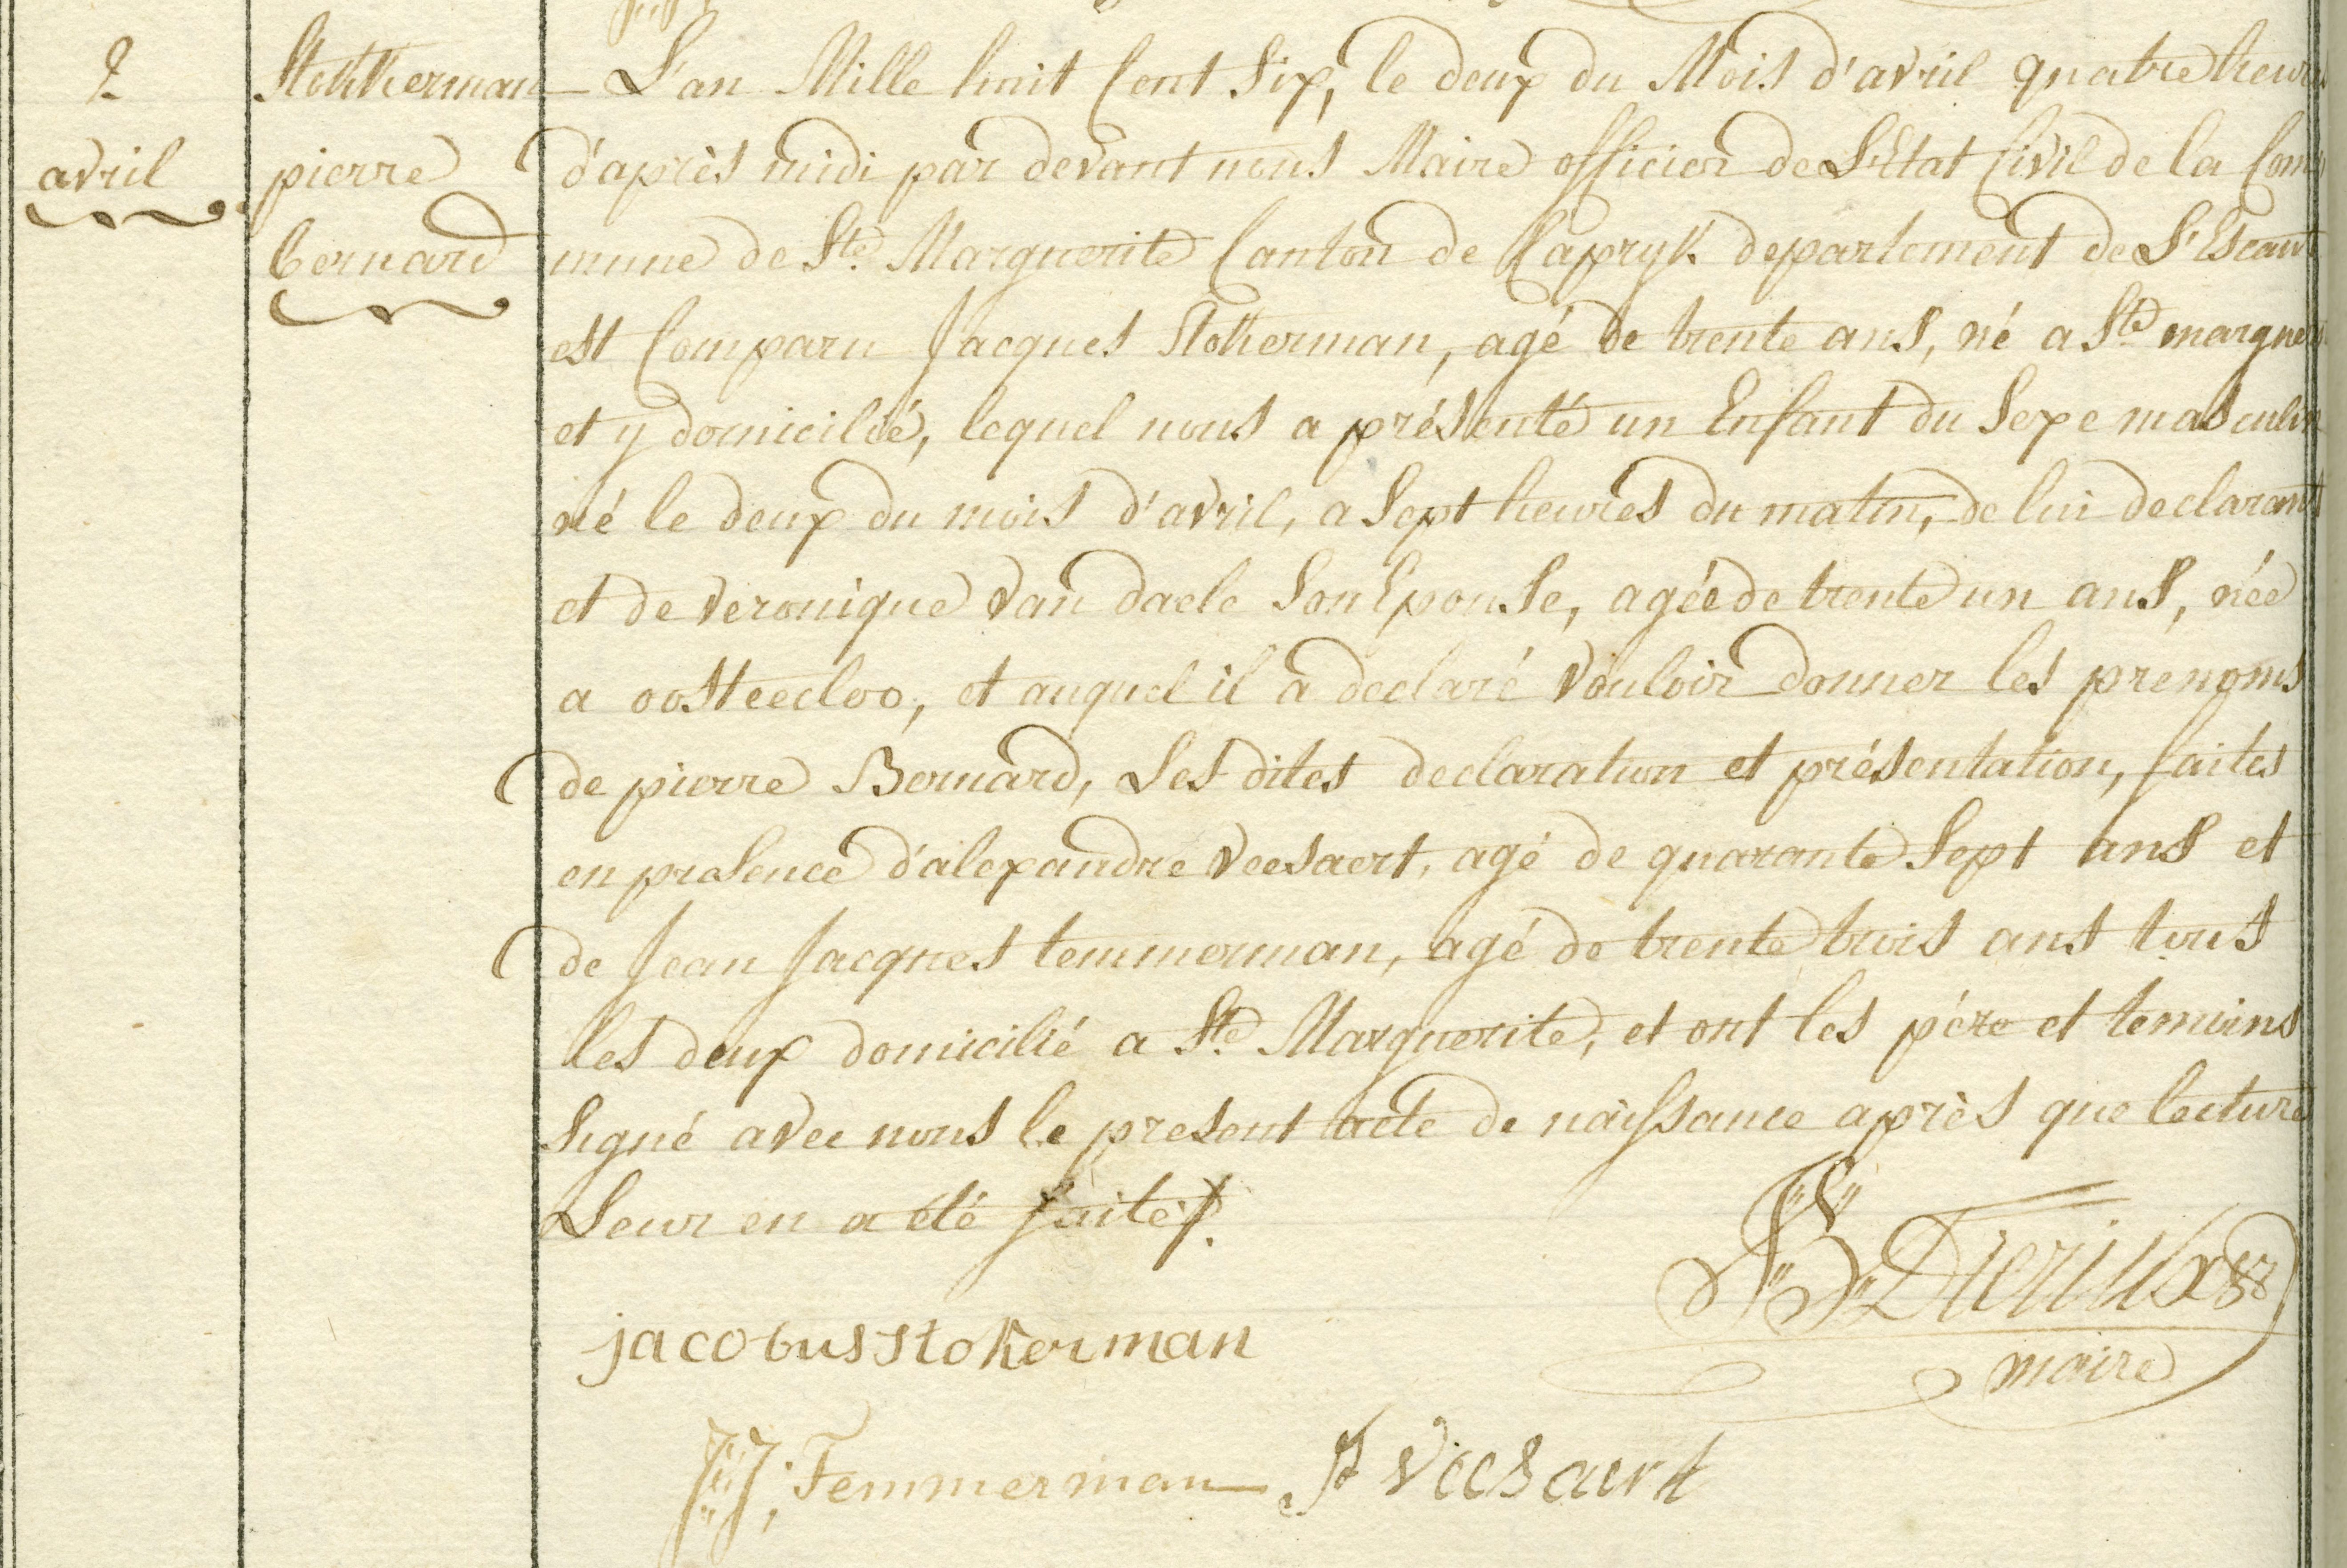 2
avril
Stokkerman
pierre
bernard
L'an Mille huit Cent Six, le deux du Mois d'avril quatre heures
d'après midi par devant nous Maire officier de L'Etat Civil de la Com
mune de Ste. Marguerite Canton de Capryk departement de L'Escaut
est Comparu Jacques Stokerman, agé de trente ans, né a Ste marguerite
et y domicilié, lequel nous a présenté un Enfant du Sexe masculin
né le deux du mois d'avril, a Sept heures du matin, de lui declarant
et de veronique van daele Son Epouse, agée de trente un ans, née
a oosteecloo, et auquel il a declaré vouloir donner les prenoms
de pierre Bernard, Les dites declaration et présentation, faites
en presence d'alexandre veesaert, agé de quarante Sept ans et
de Jean Jacques temmerman, agé de trente trois ans tous
les deux domicilié a Ste. Marguerite, et ont les pére et temoins
Signé avec nous le present acte de naissance après que lecture
Leur en a été faite.
Dierikx
maire
jacobus stokerman
JJ: Temmerman
veesaert